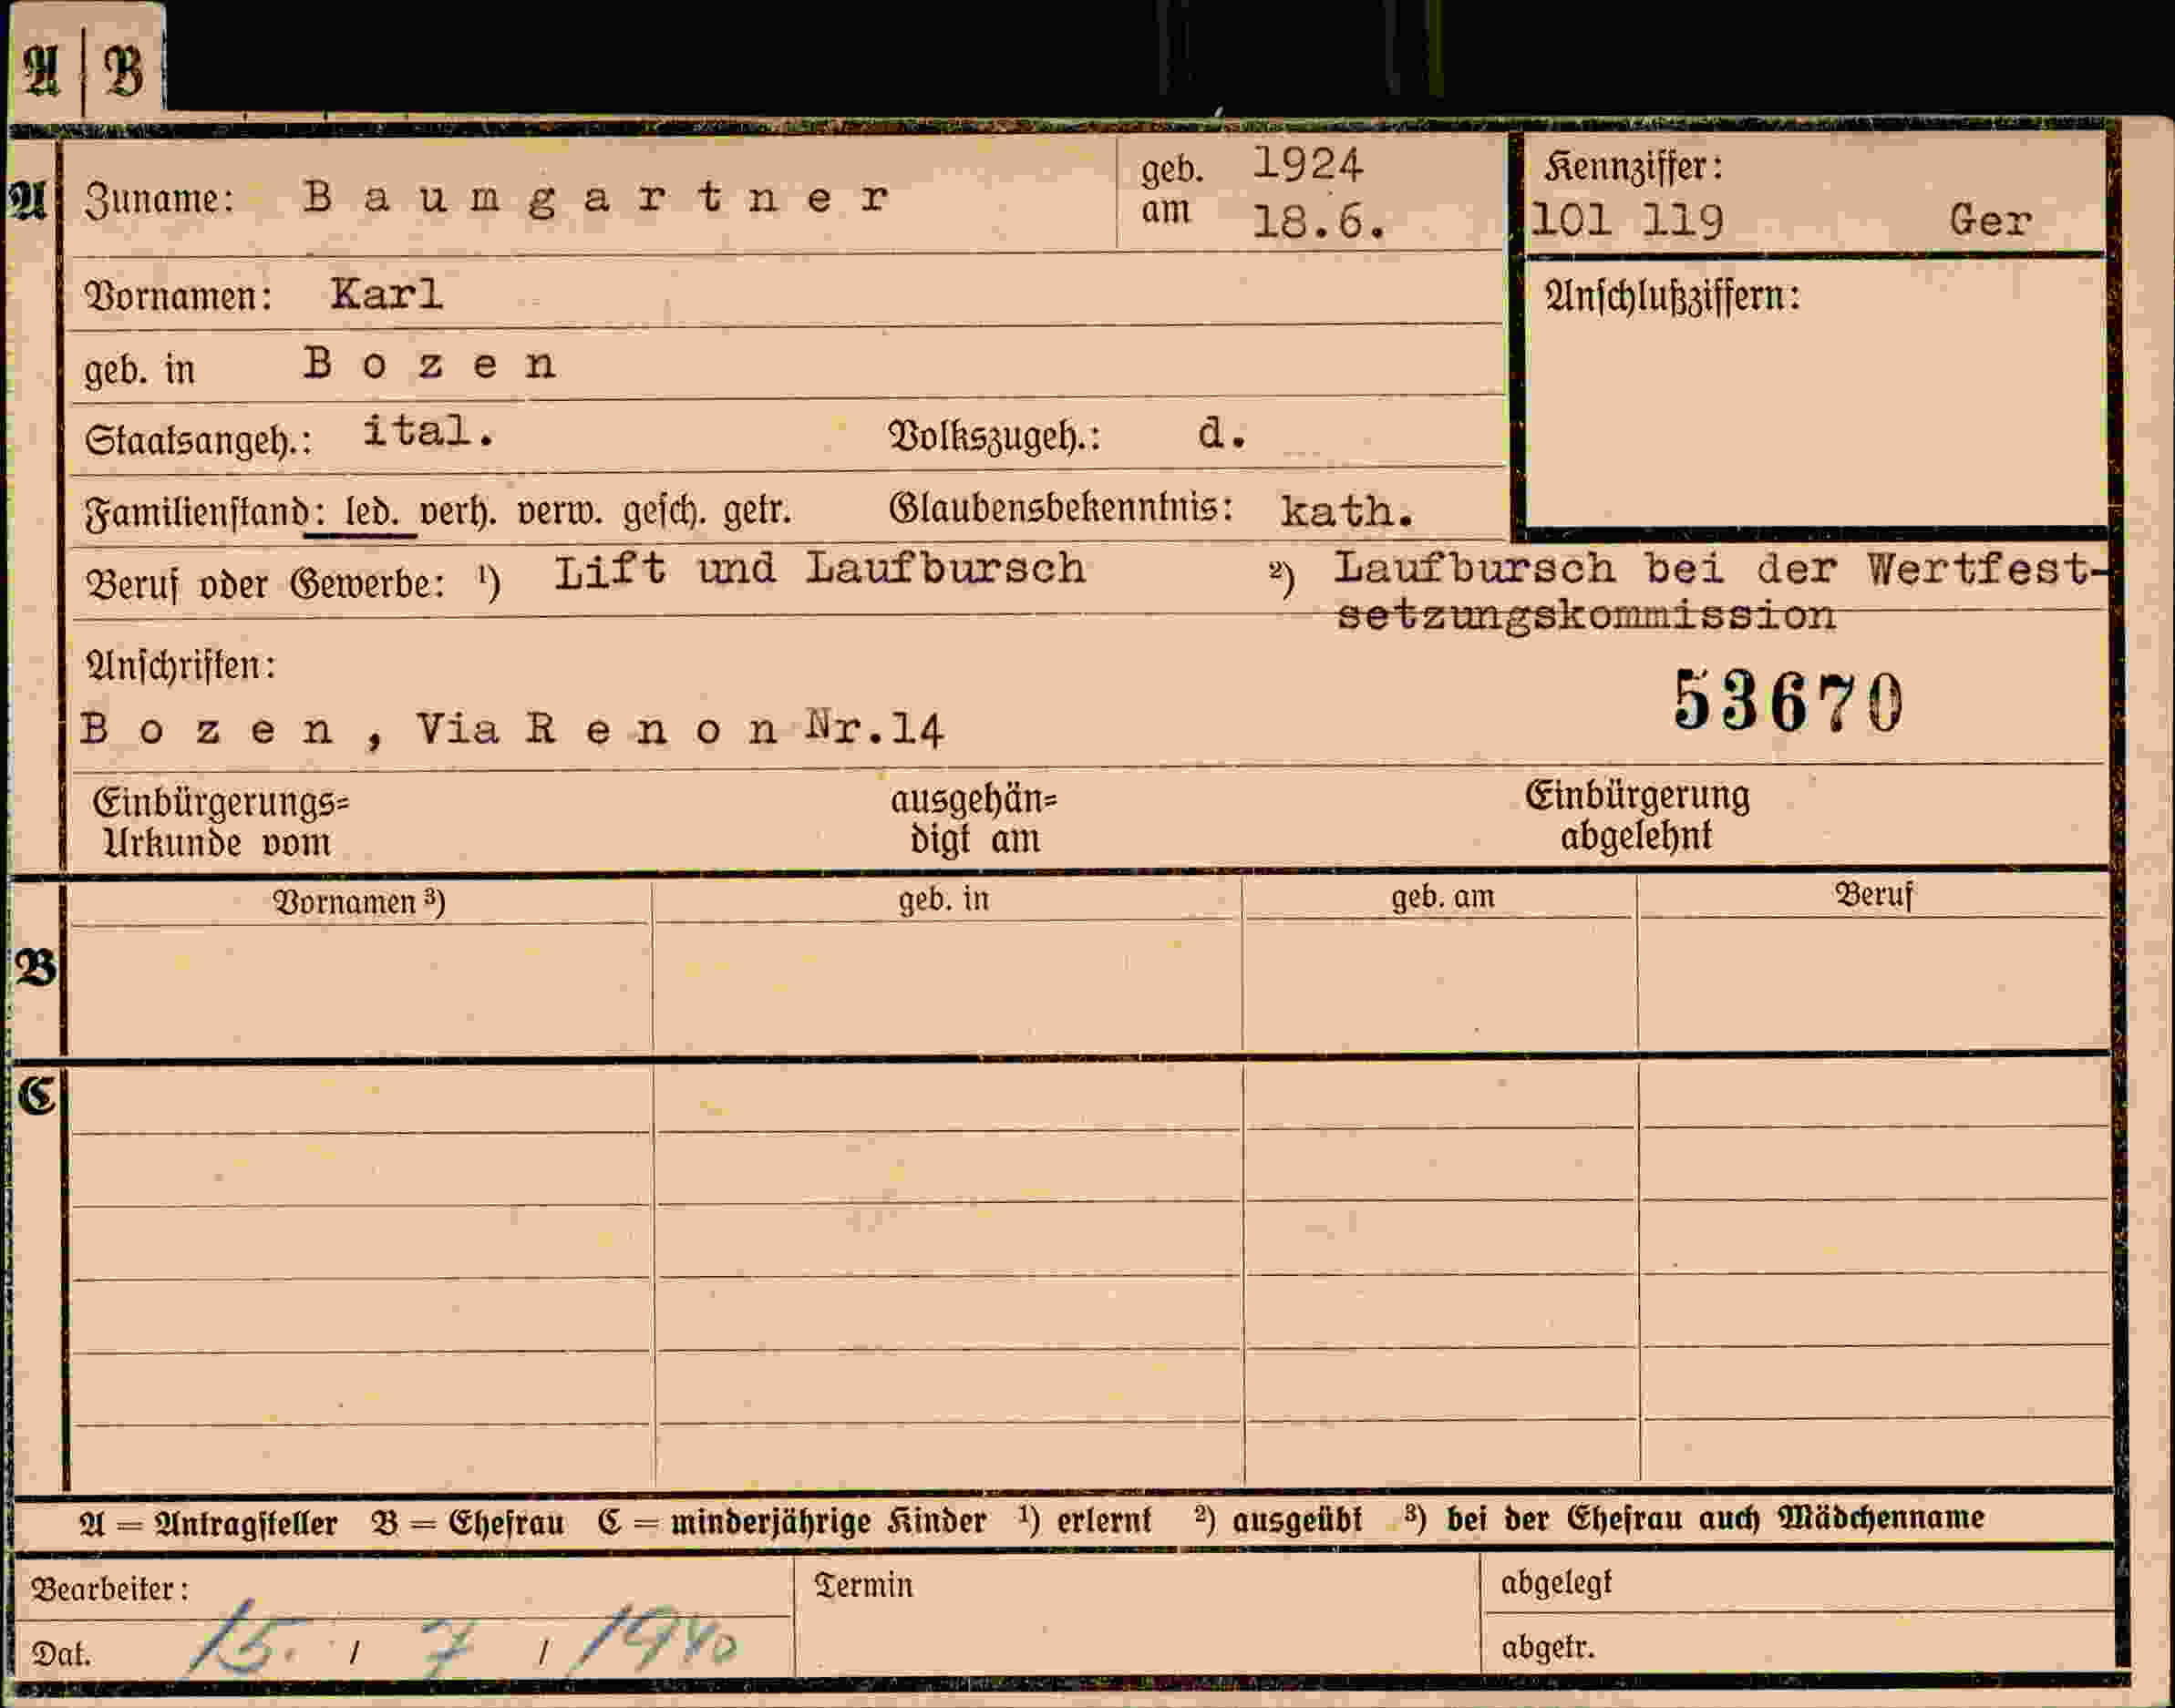 A | B
A Zuname: Baumgartner geb. am 1924 18.6. Kennziffer:
101 119 Ger
Vornamen: Karl Anschlußziffern:
geb. in Bozen
Staatsangeh.: ital. Volkszugeh.: d.
Familienstand: led. verh. verw. gesch. getr. Glaubensbekenntnis: kath.
Beruf oder Gewerbe: ¹) Lift und Laufbursch ²) Laufbursch bei der Wertfest-
setzungskommission
Anschriften:
53670
Bozen, Via Renon Nr.14
Einbürgerungs= ausgehän= Einbürgerung
Urkunde vom digt am abgelehnt
Vornamen ³) geb. in geb. am Beruf
B
C
A = Antragsteller B = Ehefrau C = minderjährige Kinder ¹) erlernt ²) ausgeübt ³) bei der Ehefrau auch Mädchenname
Bearbeiter: Termin abgelegt
Dat. 15. / 7 / 1940 abgetr.